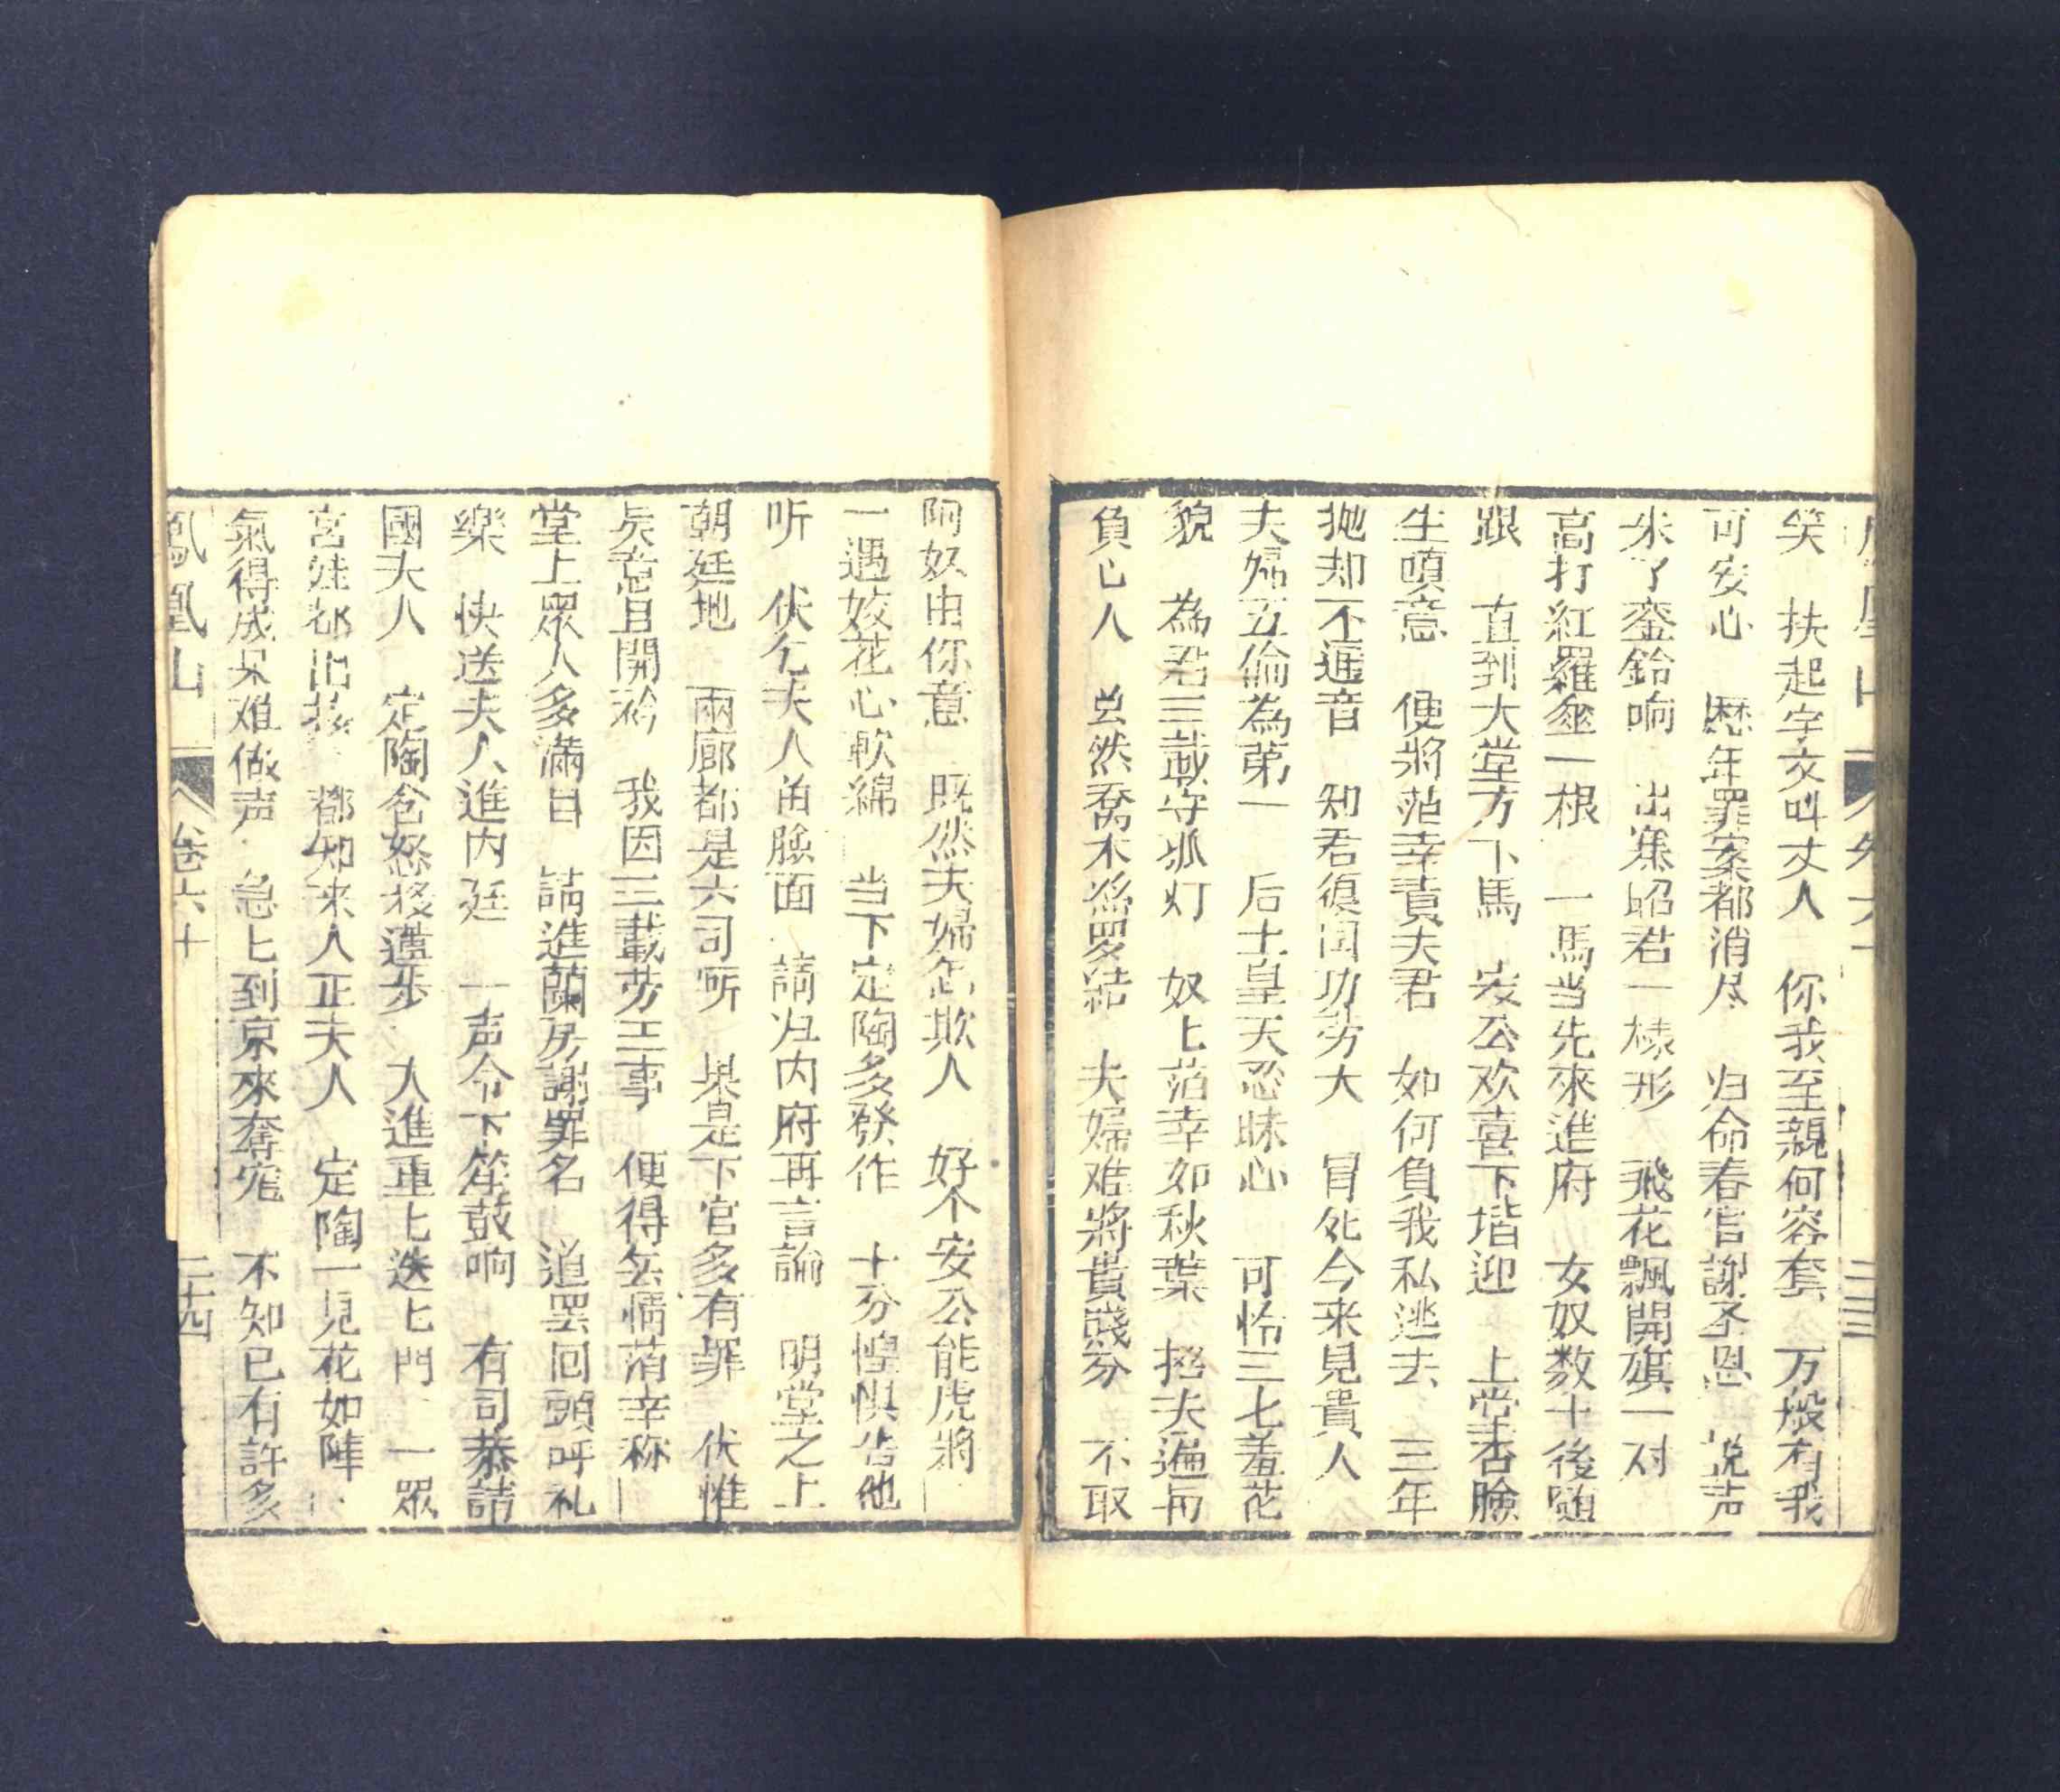 笑　扶起字文叫丈人　你我至親何容套　万般有我
可安心　歷年罪案都消尽　归命春官謝圣恩　說声
来了銮鈴响　出塞昭君一樣形　飛花飄開旗一对
高打紅羅傘一根　一馬当先來進府　女奴数十後随
跟　直到大堂方下馬　安公欢喜下堦迎　上堂杏臉
生嗔意　便將萡幸責夫君　如何負我私逃去　三年
抛却不通音　知君復国功劳大　冒死今来見貴人
夫婦五倫為第一　后土皇天忍昧心　可怜三七羞花
貌　為君三載守孤灯　奴匕萡幸如秋葉　抛夫
負心人　虽然喬木絲罗結　夫婦难將貴賤分　不取
阿奴由你意　既然夫婦怎欺人　好个安公能虎將
一遇姣花心軟綿　当下定陶多發作　十分惶惧告他
听　伏乞夫人留臉面　請归内府再言論　明堂之上
朝廷地　兩廊都是六司听　果是下官多有罪　伏惟
矣怒且開衿　我因三載劳王事　便得无情萡幸称
堂上眾人多滿目　請進蘭房謝罪名　道罢回頭呼礼
樂　快送夫人進内廷　一声令下笙鼓响　有司恭請
國夫人　定陶含怒移蓮步　入進重匕迭匕門　一眾
宮娃都出接　都知来人正夫人　定陶一見花如陣
氣得成呆难做声　急匕到京來奪寵　不知已有許多
鳳凰山　卷六十　二十四